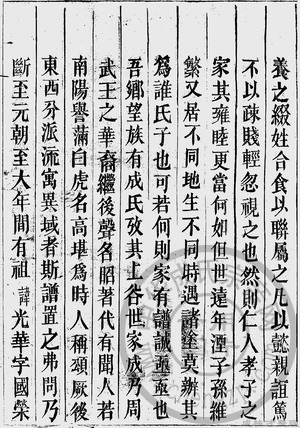 養之綴姓合食以聯屬之凡以懿親誼篤
不以疎賤輕忽視之也然則仁人孝子之
家其雍睦更當何如但世遠年湮子孫維
繁又居不同地生不同時遇諸塗莫辨其
為誰氏子也可若何則家有譜誠亟亟也
吾鄉望族有成氏攷其上谷世家成乃周
武王之華裔繼後聲名昭著代有聞人若
南陽譽蒲白虎名高堪為時人稱頌厥後
東西分派流寓異域者斯譜置之弗問乃
斷至元朝至大年間有祖諱光華字國榮